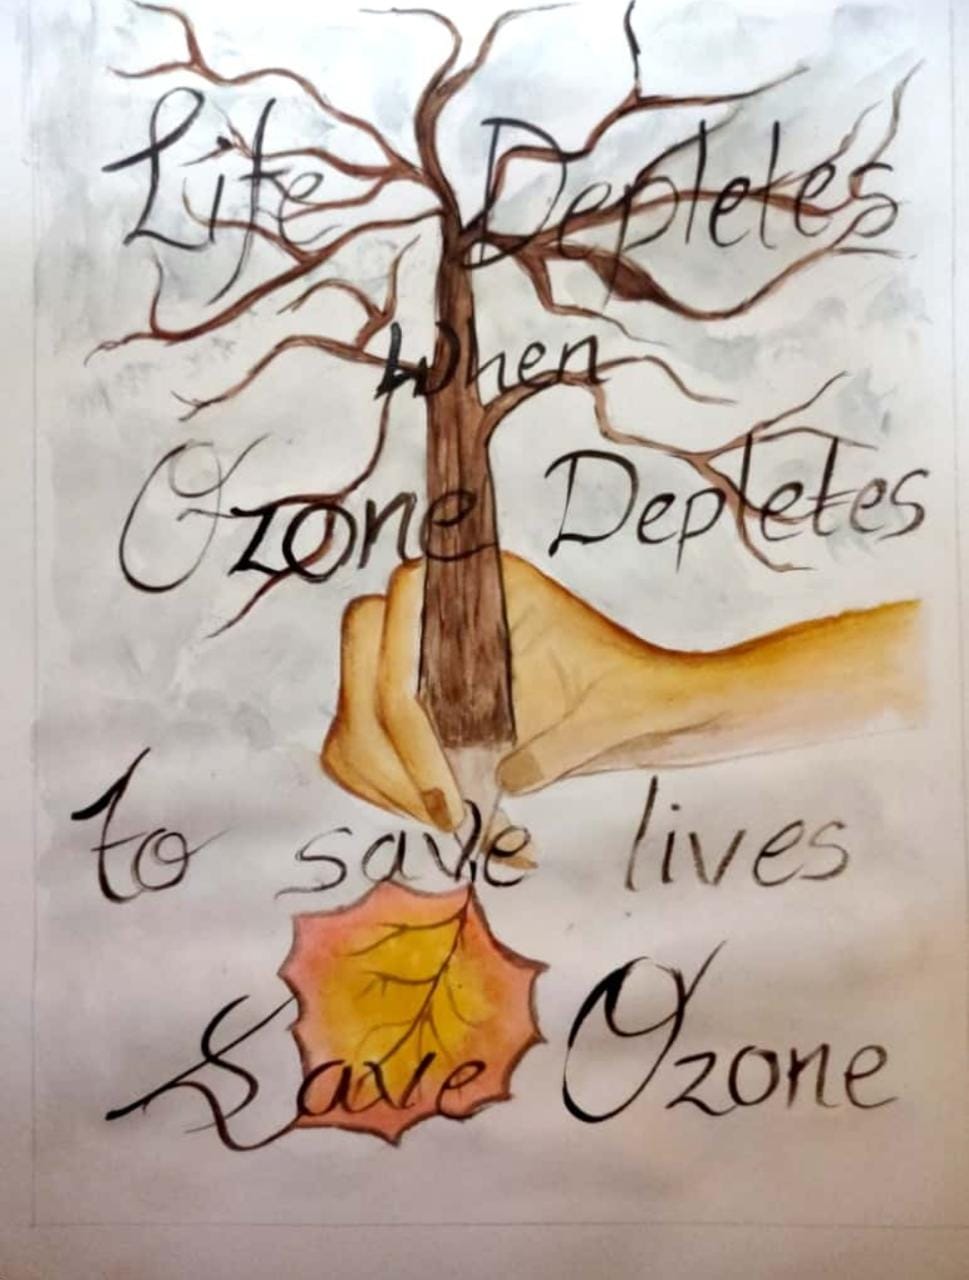 Life Depletes
When
Ozone Depletes
to save lives
Save Ozone